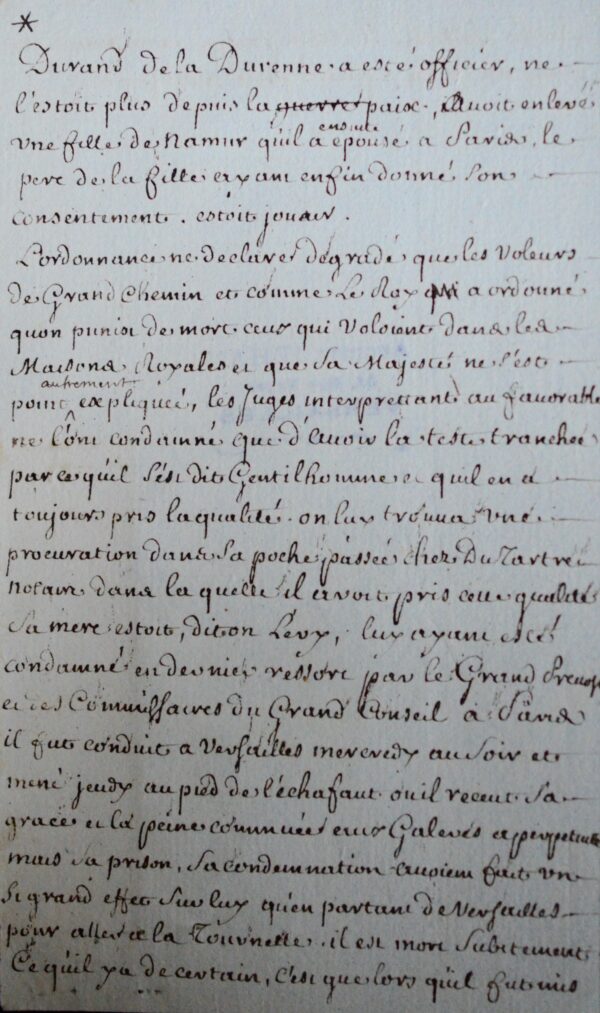 *
Durand de la Durenne a esté officier, ne
l'estoit plus depuis la guerre paix, Avoit enlevé
une fille de Namur qu'il a ensuite épousé a Paris, le
pere de la fille ayant enfin donné son
consentement. estoit joueur.
L'ordonnance ne declare dégradé que les Voleurs
de Grand Chemin et comme Le Roy qui a ordonné
quon punise de mort ceux qui Voloient dans les
Maisons Royales et que Sa Majesté ne s'est
point autrement expliquée, les Juges interprettant au favorable
ne l'ont condamné que d'avoir la teste tranchée
parce qu'il s'est dit Gentilhomme et quil en a
toujours pris la qualité. on luy trouva une
procuration dans sa poche passée chez Du Tartre
notaire dans la quelle il avoit pris cette qualité
Sa mere estoit, dit on Lévy, luy ayant esté
condamné en dernier ressort par le Grand Prevost
et des Commissaires du Grand Conseil à Paris
il fut conduit a Versailles mercredy au soir et
mené jeudy au pied de l'échafaut ou il receut Sa
grace et la peine commuée aux Galeres a perpetuité
mais sa prison, sa condemnation avoient fait un
si grand effet sur luy qu'en partant de Versailles
pour aller a la Tournelle il est mort subitement
Ce qu'il y a de certain, c'est que lors qu'il fut mis